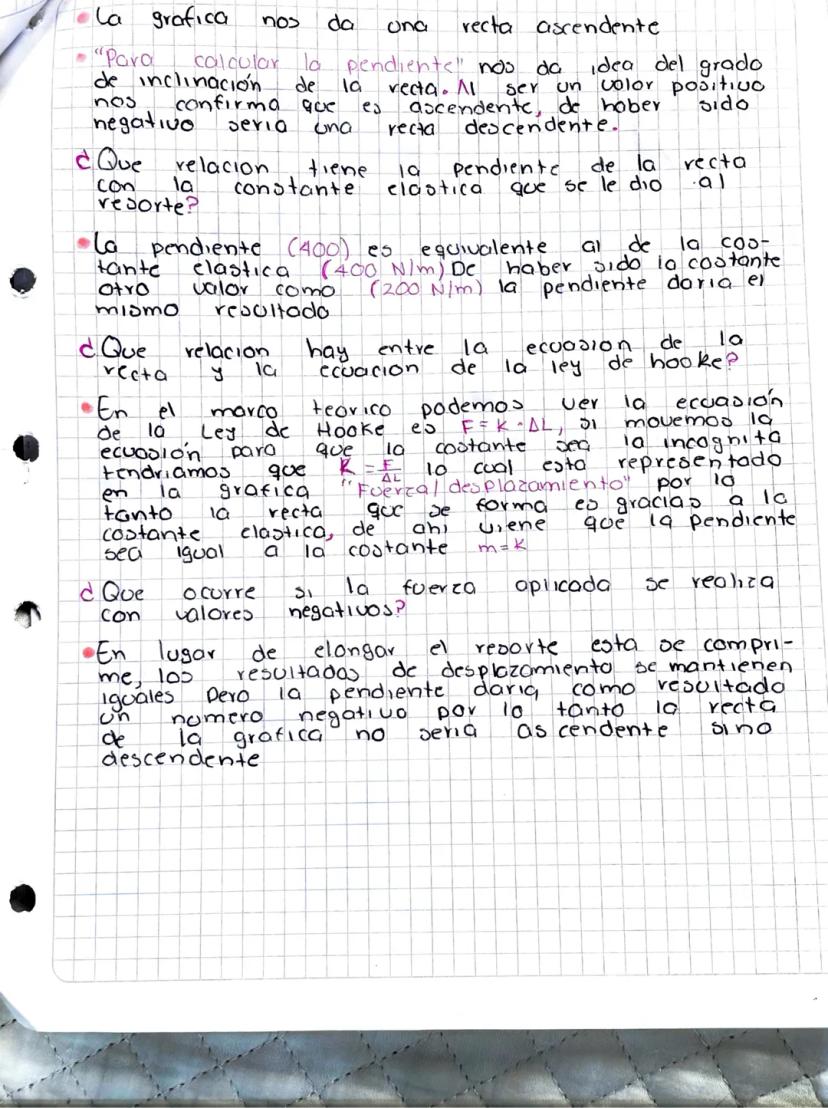 La grafica nos da una recta ascendente
"Para calcular la pendiente" nos da idea del grado
de inclinación de la recta. Al ser un valor positivo
nos confirma que es ascendente, de haber sido
negativo seria una recta descendente.
¿Que relacion tiene la pendiente de la recta
con la constante elastica que se le dio al
resorte?
La pendiente (400) es equivalente al de la cos-
tante elastica (400 N/m) De haber sido la costante
otro valor como (200 N/m) la pendiente daria el
mismo resultado
¿Que relacion hay entre la ecuasion de la
recta y la ecuacion de la ley de hooke?
En el marco teorico podemos ver la ecuasión
de la Ley de Hooke es F = K · ΔL, si movemos la
ecuasión para que la costante sea la incognita
tendriamos que K = F/ΔL lo cual esta representado
en la grafica "Fuerza/desplazamiento" por lo
tanto la recta que se forma es gracias a la
costante elastica, de ahi viene que la pendiente
sea igual a la costante m=K
¿Que ocurre si la fuerza aplicada se realiza
con valores negativos?
En lugar de elongar el resorte esta se compri-
me, los resultados de desplazamiento se mantienen
iguales pero la pendiente daria como resultado
un numero negativo por lo tanto la recta
de la grafica no seria ascendente sino
descendente